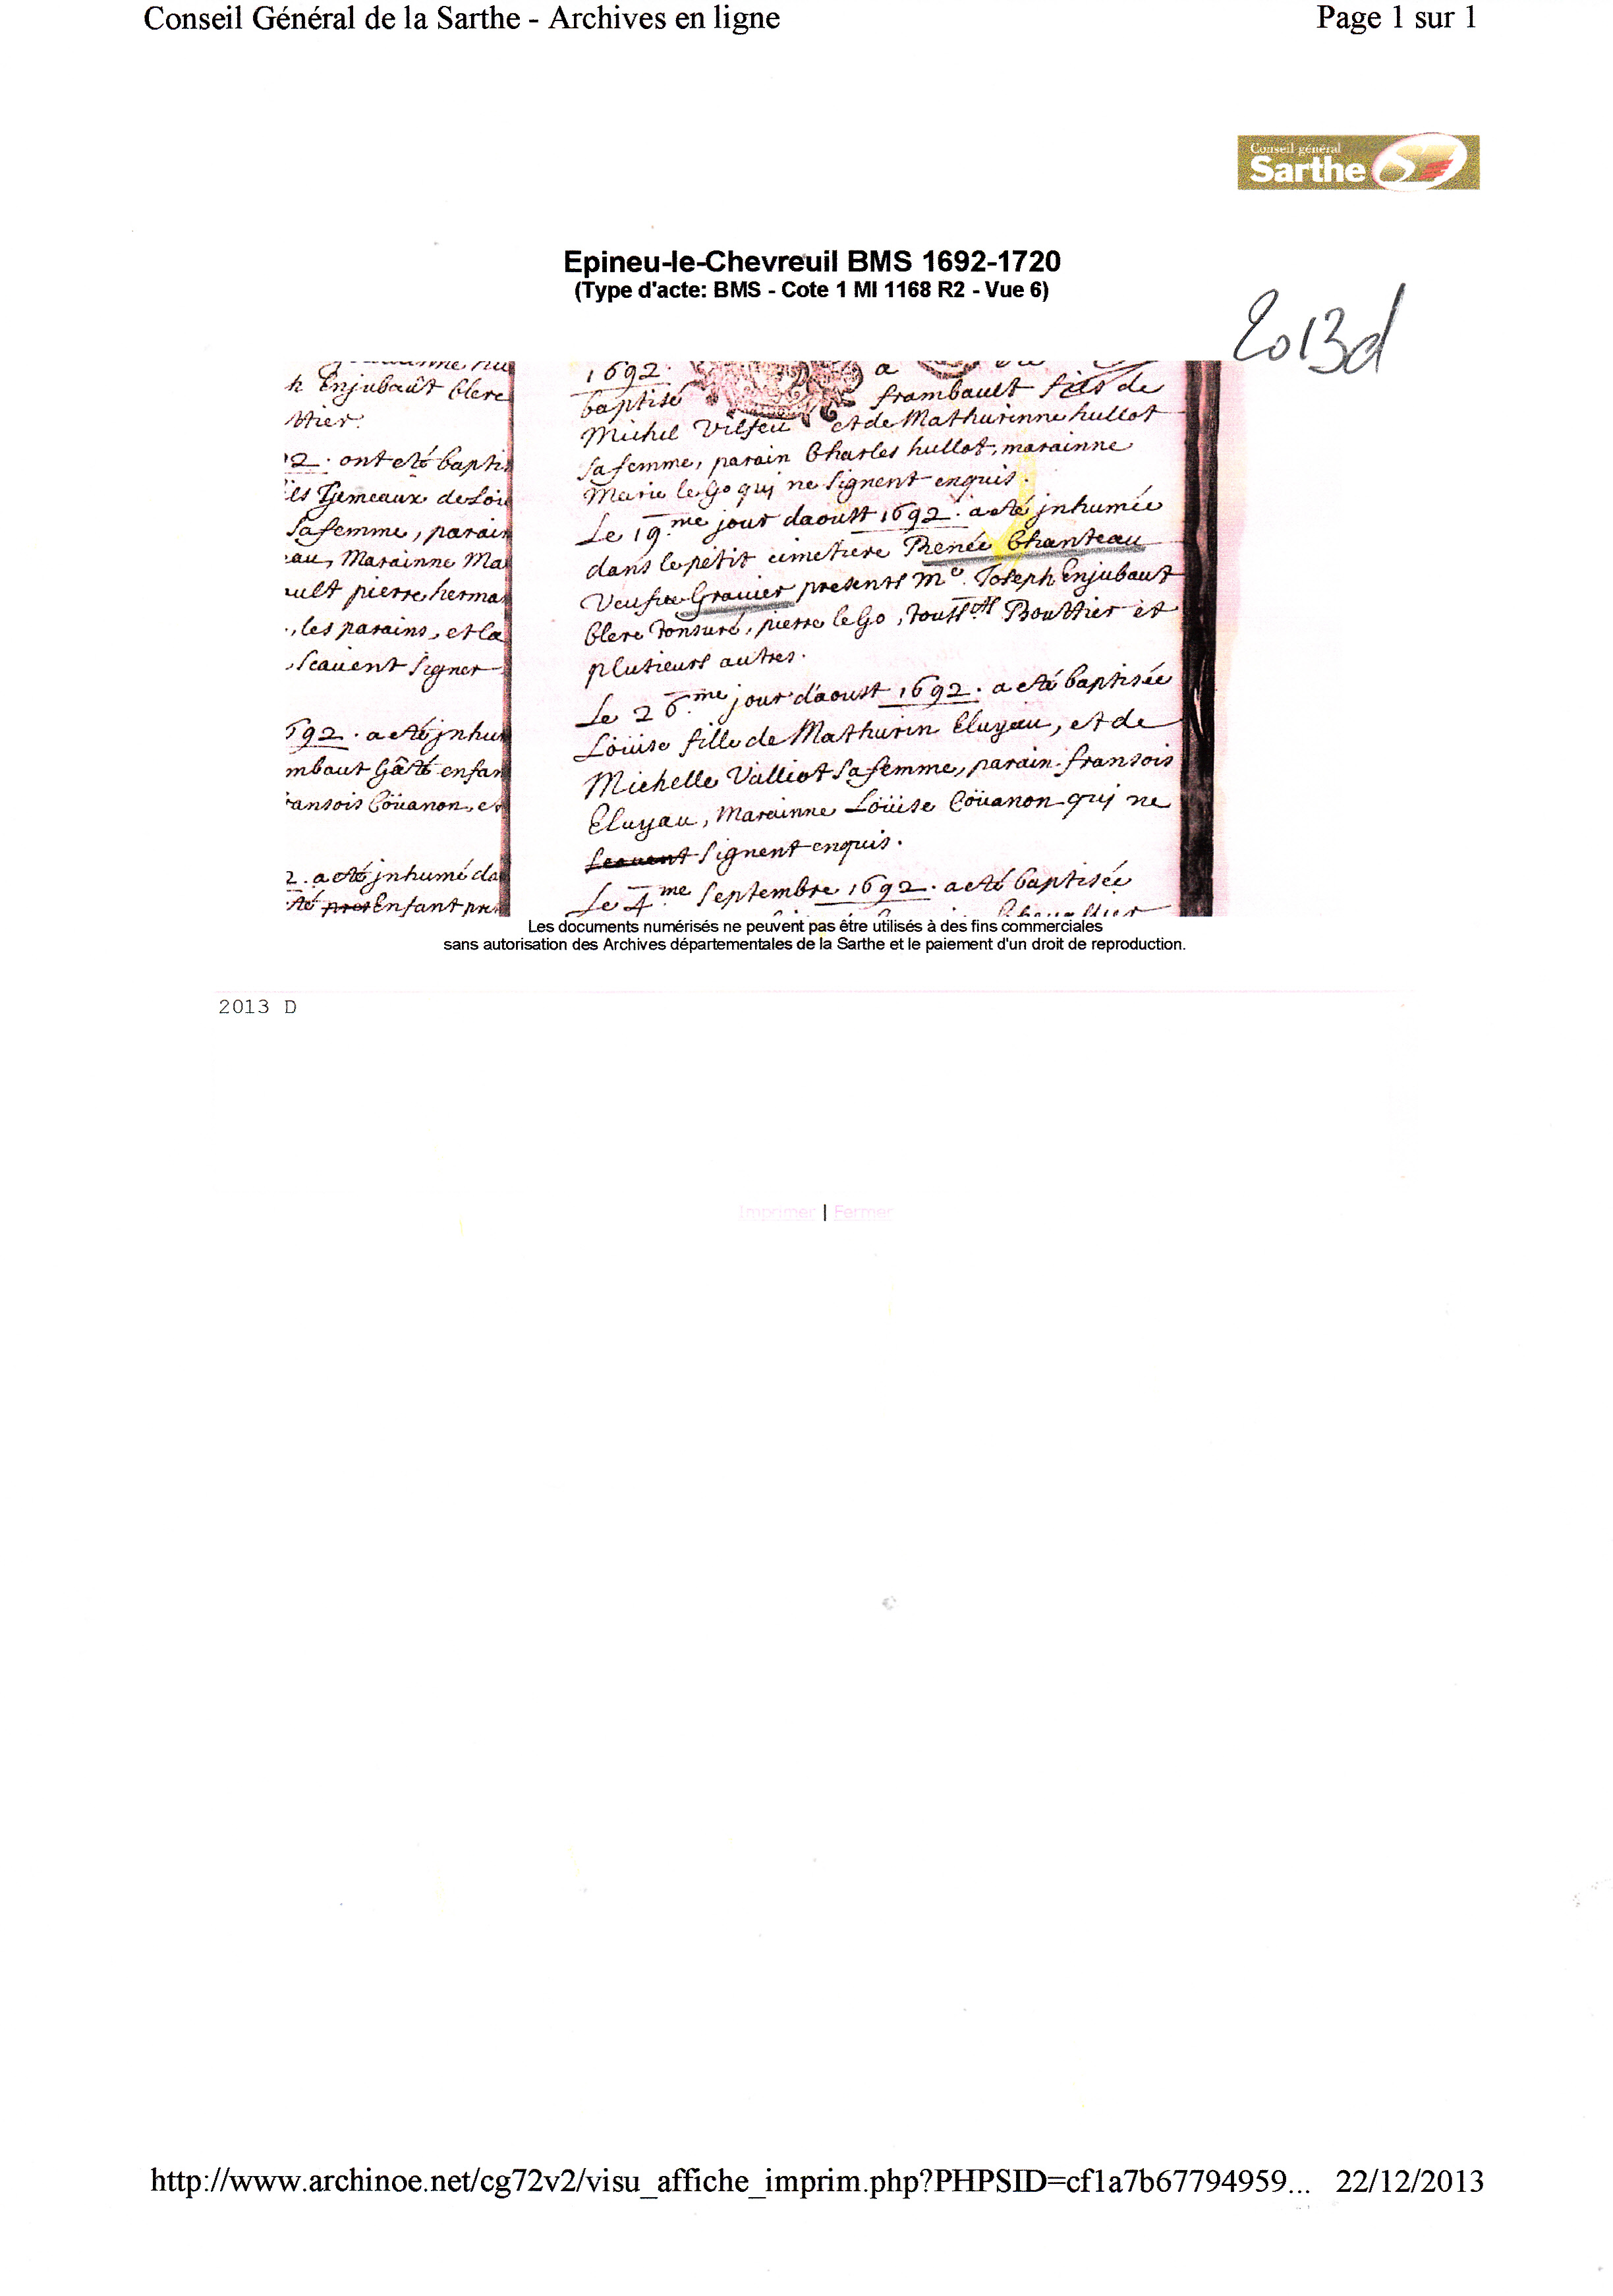 Conseil Général de la Sarthe - Archives en ligne
Page 1 sur 1
Conseil général
Sarthe
Epineu-le-Chevreuil BMS 1692-1720
(Type d'acte: BMS - Cote 1 MI 1168 R2 - Vue 6)
2013d
h Enjubault Clerc
ttier.
92. ont eté bapti
ils Jumeaux de Loü
sa femme, parain
eau, Marainne Ma
ault pierre herma
, les parains, et la
scavent signer
692. a eté jnhum
mbaut Gâté enfan
ransois Coüanon, et
2. a eté jnhumé da
té pres Enfant pre
1692. a
baptisé frambault fils de
Michel Vilfeu et de Mathurinne hullot
sa femme, parain Charles hullot, marainne
Marie le Go qui ne signent enquis.
Le 19.me jour daoust 1692. a eté jnhumée
dans le petit cimetiere Renée Chanteau
Veufue Grauier presents Me. Joseph Enjubault
Clerc Tonsuré, pierre le Go, Touss.nt Bouttier et
plusieurs autres.
Le 26.me jour d'aoust 1692. a eté baptisée
Loüise fille de Mathurin Eluyau, et de
Michelle Valliot sa femme, parain fransois
Eluyau, Marainne Loüise Coüanon qui ne
scavent signent enquis.
Le 4.me Septembre 1692. a eté baptisée
Les documents numérisés ne peuvent pas être utilisés à des fins commerciales
sans autorisation des Archives départementales de la Sarthe et le paiement d'un droit de reproduction.
2013 D
Imprimer | Fermer
http://www.archinoe.net/cg72v2/visu_affiche_imprim.php?PHPSID=cf1a7b67794959... 22/12/2013